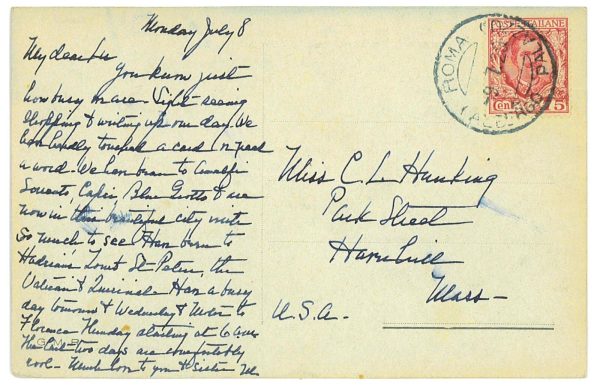 Monday July 8
My dear Lu
You know just
how busy we are Sight seeing
shopping & writing up our day. We
have hardly touched a card or read
a word. We have been to Amalfi
Sorrento Capri Blue Grotto & are
now in this beautiful city with
so much to see. Have been to
Hadrian's Tomb St Peters, the
Vatican & Quirinale Have a busy
day tomorrow & Wednesday & Motor to
Florence Thursday starting at 6
The last two days are comfortably
cool - Much love to you & Sister
Miss C. L. Hunking
Park Street
Haverhill
Mass -
U.S.A.
POSTE ITALIANE
Cen 75
ROMA